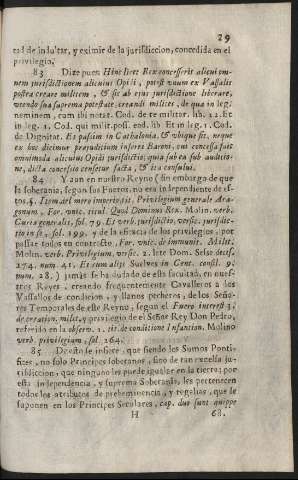 29
tad de indultar, y eximir de la jurisdiccion, concedida en el
privilegio,
83 Dize pues Hinc licet Rex concesserit alicui om-
nem jurisdictionem alicuius Opidi, potest unum ex Vasallis
postea creare militem, & sic ab ejus jurisdictione liberare,
utendo sua suprema potestate creandi milites, de qua in leg.
neminem, cum ibi notat. Cod. de re militar. lib. 12. Et
in leg. 1. Cod. qui milit. poss. eod. lib. Et in leg. 1. Cod.
de Dignitat. Et passim in Catholonia, & ubique sit, neque
ex hoc dicimus præjudicium inferre Baroni, cui concessa fuit
omnimoda alicuius Opidi jurisdictio; quia sub ea sub auditio-
ne, dicta concessio censetur facta, & ita consului.
84 Y aun en nuestro Reyno (sin embargo de que
la soberania, segun sus Fueros, no era independiente) es-
vos §. Item del mero imperio tit. Privilegium generale Ara-
gonum, For. unic. titul. Quod Dominus Rex. Molin. verb.
Curia generalis, fol. 79. Et verb. jurisdictio, versic. jurisdic-
tio in se, fol. 199. y de la eficacia de los privilegios, por
passar todos en contracto, For. unic. de immunit. Milit.
Molin. verb. Privilegium, versic. 2. late Dom. Sesse decis.
274. num. 41. Et cum aliis Suelves in Cent. consil. 9.
num. 28.) jamás se ha dudado de esta facultad, en nues-
tros Reyes, creando frequentemente Cavalleros a los
Vassallos de condicion, y llanos pecheros, de los Seño-
res Temporales de este Reyno, segun el Fuero interest 3,
de creation. milit, y privilegio de el Señor Rey Don Pedro,
referido en la observ. 2. tit. de conditione Infantion. Molino
verb. privilegium, fol. 264.
85 De esto se infiere, que siendo los Sumos Ponti-
fices, no solo Principes soberanos, sino de tan excelsa ju-
risdiccion, que ninguno les puede igualar en la tierra; por
esta independencia, y suprema Soberania, les pertenecen
todos los atributos de prehemimencia, y regalias, que se
suponen en los Principes Seculares, cap. duo sunt quippe
H 68.